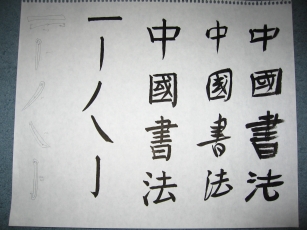 中國書法
中國書法
中國書法
一丨丿㇏亅